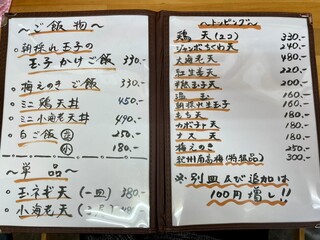 ～ご飯物～
○朝採れ玉子の
玉子かけご飯 390.-
○梅えのきご飯 330.-
○ミニ鶏天丼 450.-
○ミニ小海老天丼 490.-
○白ご飯 大 250.-
小 180.-
～単品～
○玉ネギ天(一皿) 380.-
○小海老天
～トッピング～
鶏天(2コ) 330.-
ジャンボちくわ天 240.-
大海老天 480.-
紅生姜天 220.-
半熟玉子天 200.-
温玉 160.-
朝採れ生玉子 160.-
もち天 180.-
カボチャ天 180.-
ナス天 180.-
梅えのき 250.-
紀州南高梅(特級品) 300.-
※別皿及び追加は
100円増し!!